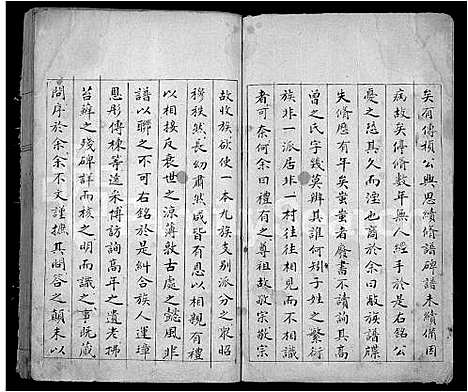 矣有傅楨公興思續修譜碑譜未續備因
病故矣停修數年無人經手於是右銘公
憂之恐其久而湮也商於余曰敝族譜牒
失修歷有年矣蚩蚩者廢書不讀詢其高
曾之氏字幾莫辨其誰何樹子姓之繁衍
族非一派居非一村往往相見而不相識
者可奈何余曰禮有之尊祖故敬宗敬宗
故收族欲使一本九族支別派分之眾昭
穆秩然長幼肅然咸皆有恩以相親有禮
以相接反衰世之涼薄敦古處之懿風非
譜以聯之不可右銘於是糾合族人運璋
恩彤傅棟等遂采傅訪詢高年之遺老掃
苔蘚之殘碑詳而核之明而識之事既蕆
問序於余余不文謹撫其問答之顛末以